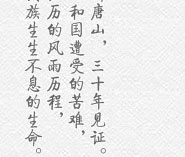 唐山，三十年见证。
和国遭受的苦难，
历的风雨历程，
族生生不息的生命。